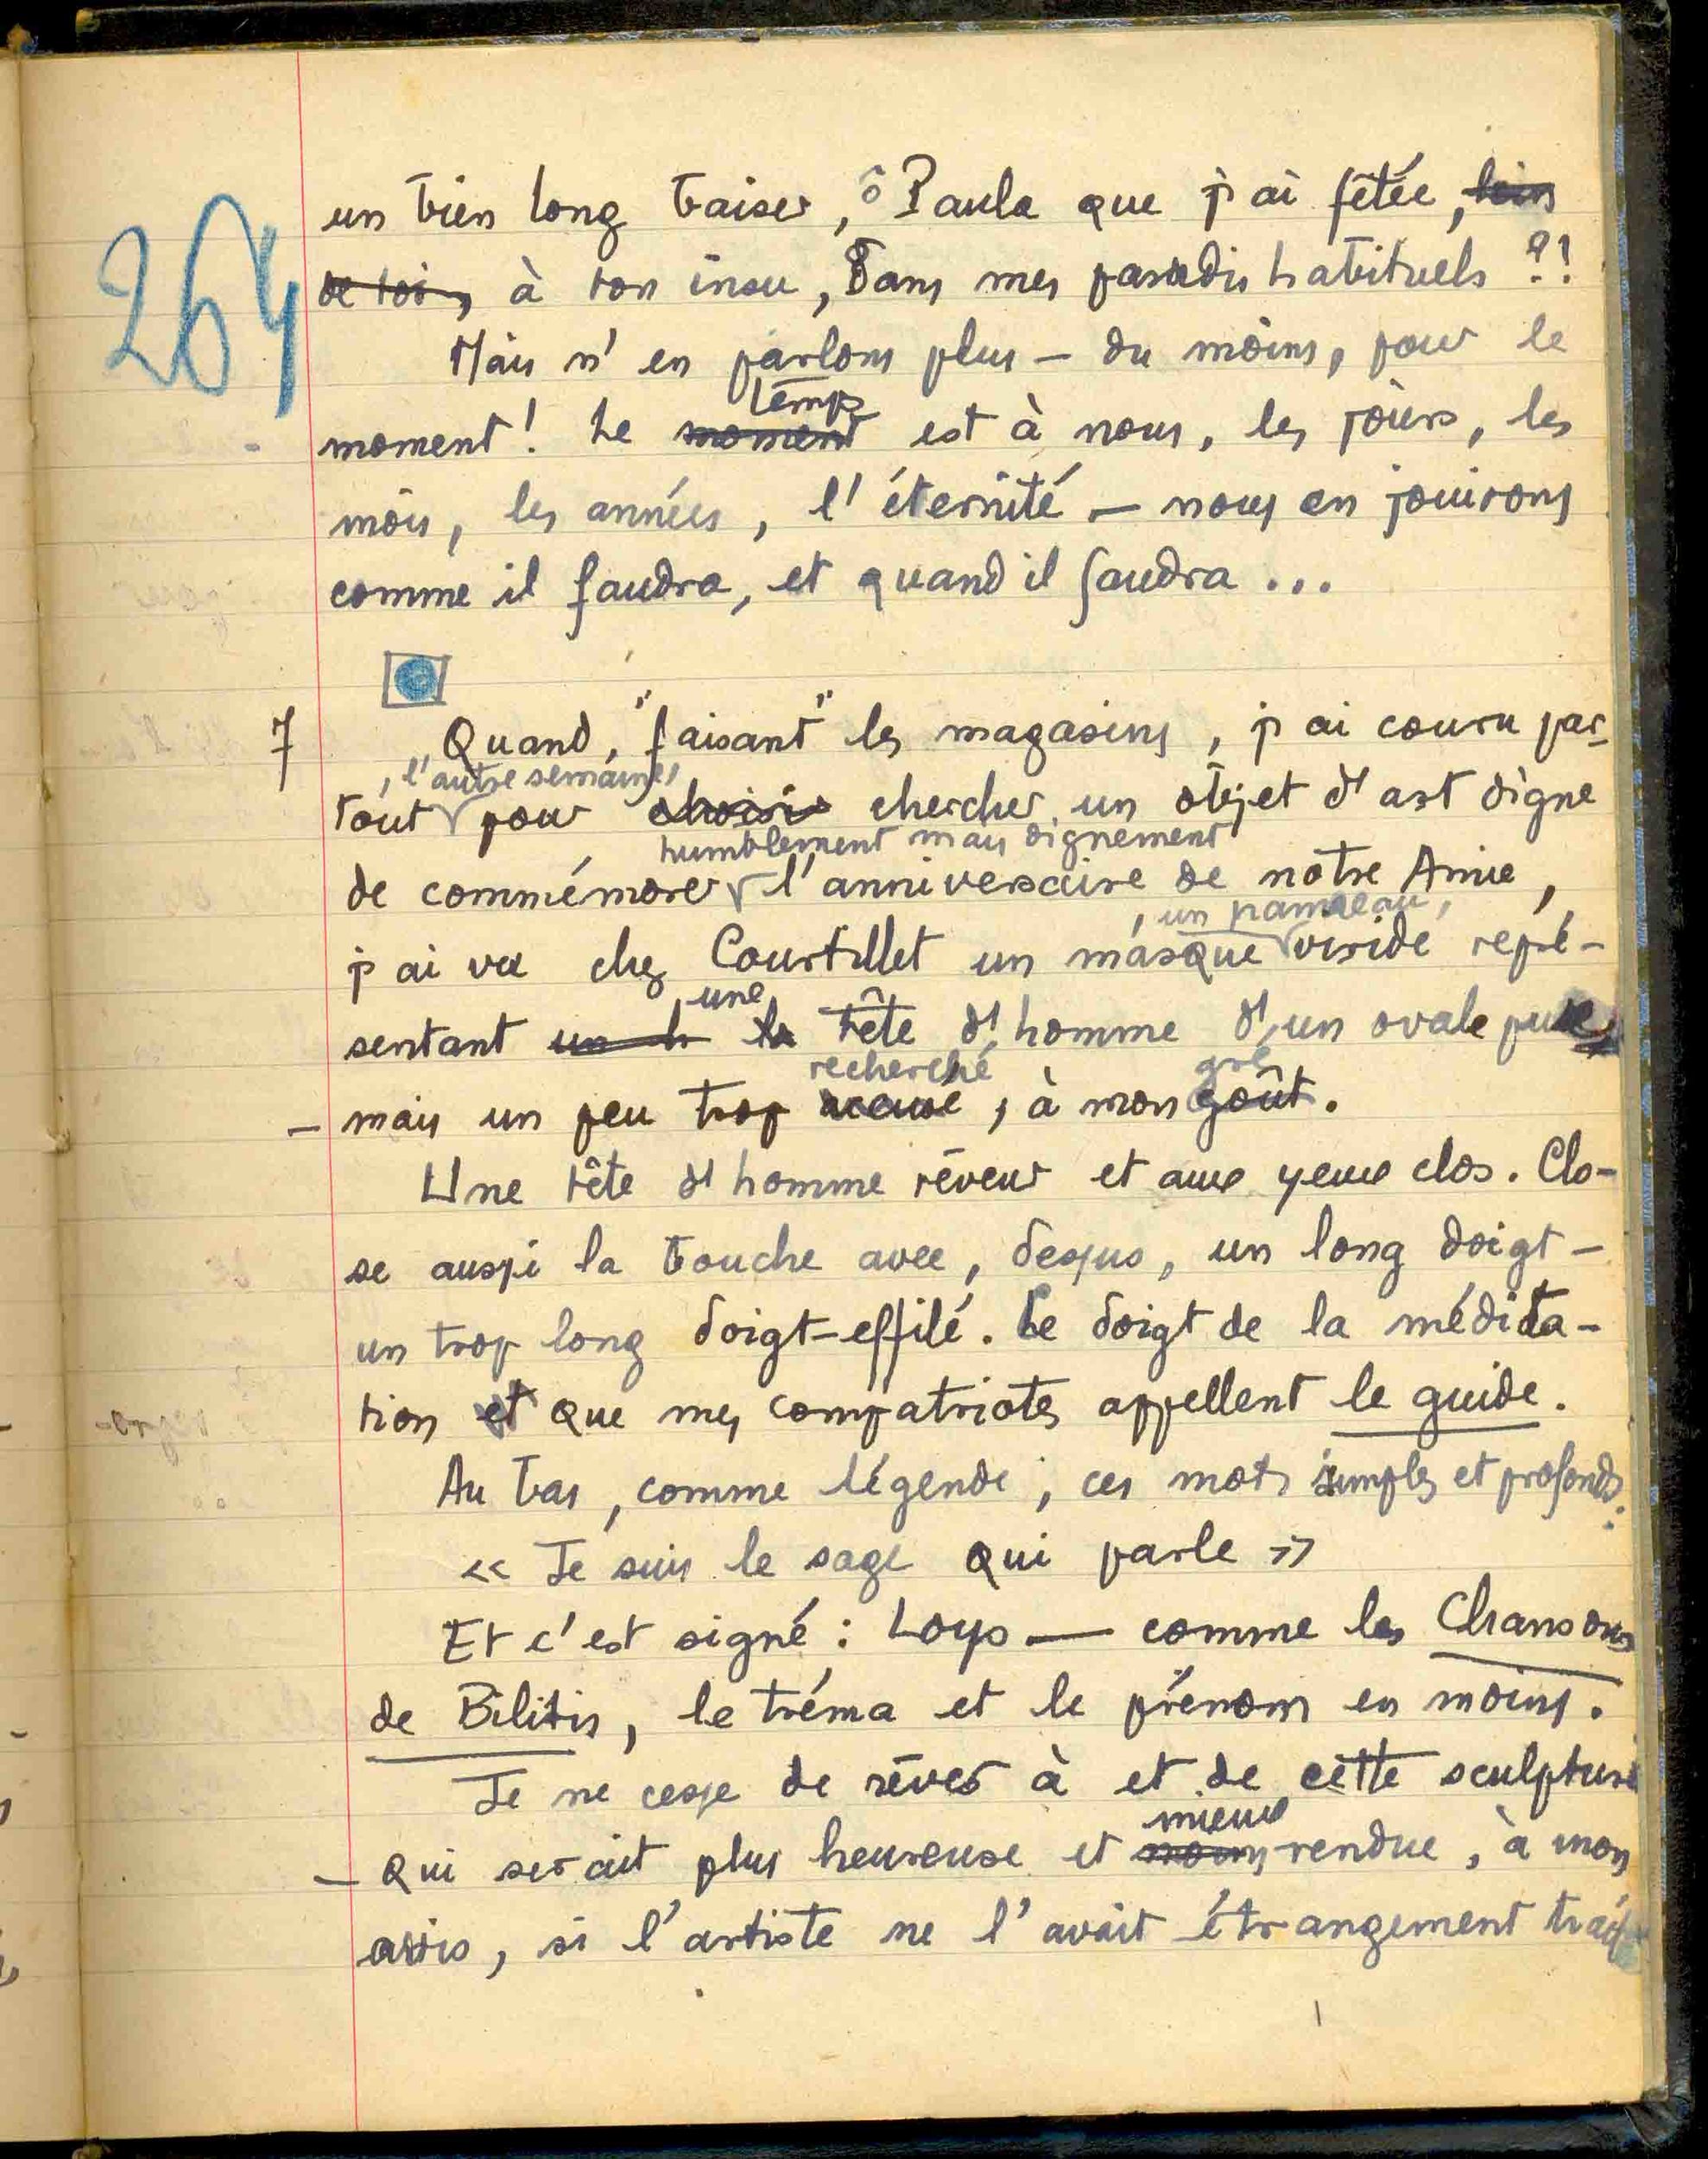 264
un bien long baiser, ô Paula que j'ai fêtée, loin
de toi, à ton insu, dans mes paradis habituels ?!
Mais n'en parlons plus — du moins, pour le
temps
moment ! Le moment est à nous, les jours, les
mois, les années, l'éternité — nous en jouirons
comme il faudra, et quand il faudra ...
7 Quand, "faisant" les magasins, j'ai couru par-
, l'autre semaine,
tout pour choisir chercher un objet d'art digne
humblement mais dignement
de commémorer l'anniversaire de notre Amie,
, un panneau,
j'ai vu chez Courtillet un masque viride repré-
une
sentant un h la tête d'homme d'un ovale pur
recherché gré
— mais un peu trop accusé, à mon goût.
Une tête d'homme rêveur et aux yeux clos. Clo-
se aussi la bouche avec, dessus, un long doigt —
un trop long doigt-effilé. Le doigt de la médita-
tion et que mes compatriotes appellent le guide.
Au bas, comme légende, ces mots simples et profonds :
« Je suis le sage qui parle »
Et c'est signé : Loys — comme les Chansons
de Bilitis, le tréma et le prénom en moins.
Je ne cesse de rêver à et de cette sculpture
mieux
— qui serait plus heureuse et moins rendue, à mon
avis, si l'artiste ne l'avait étrangement